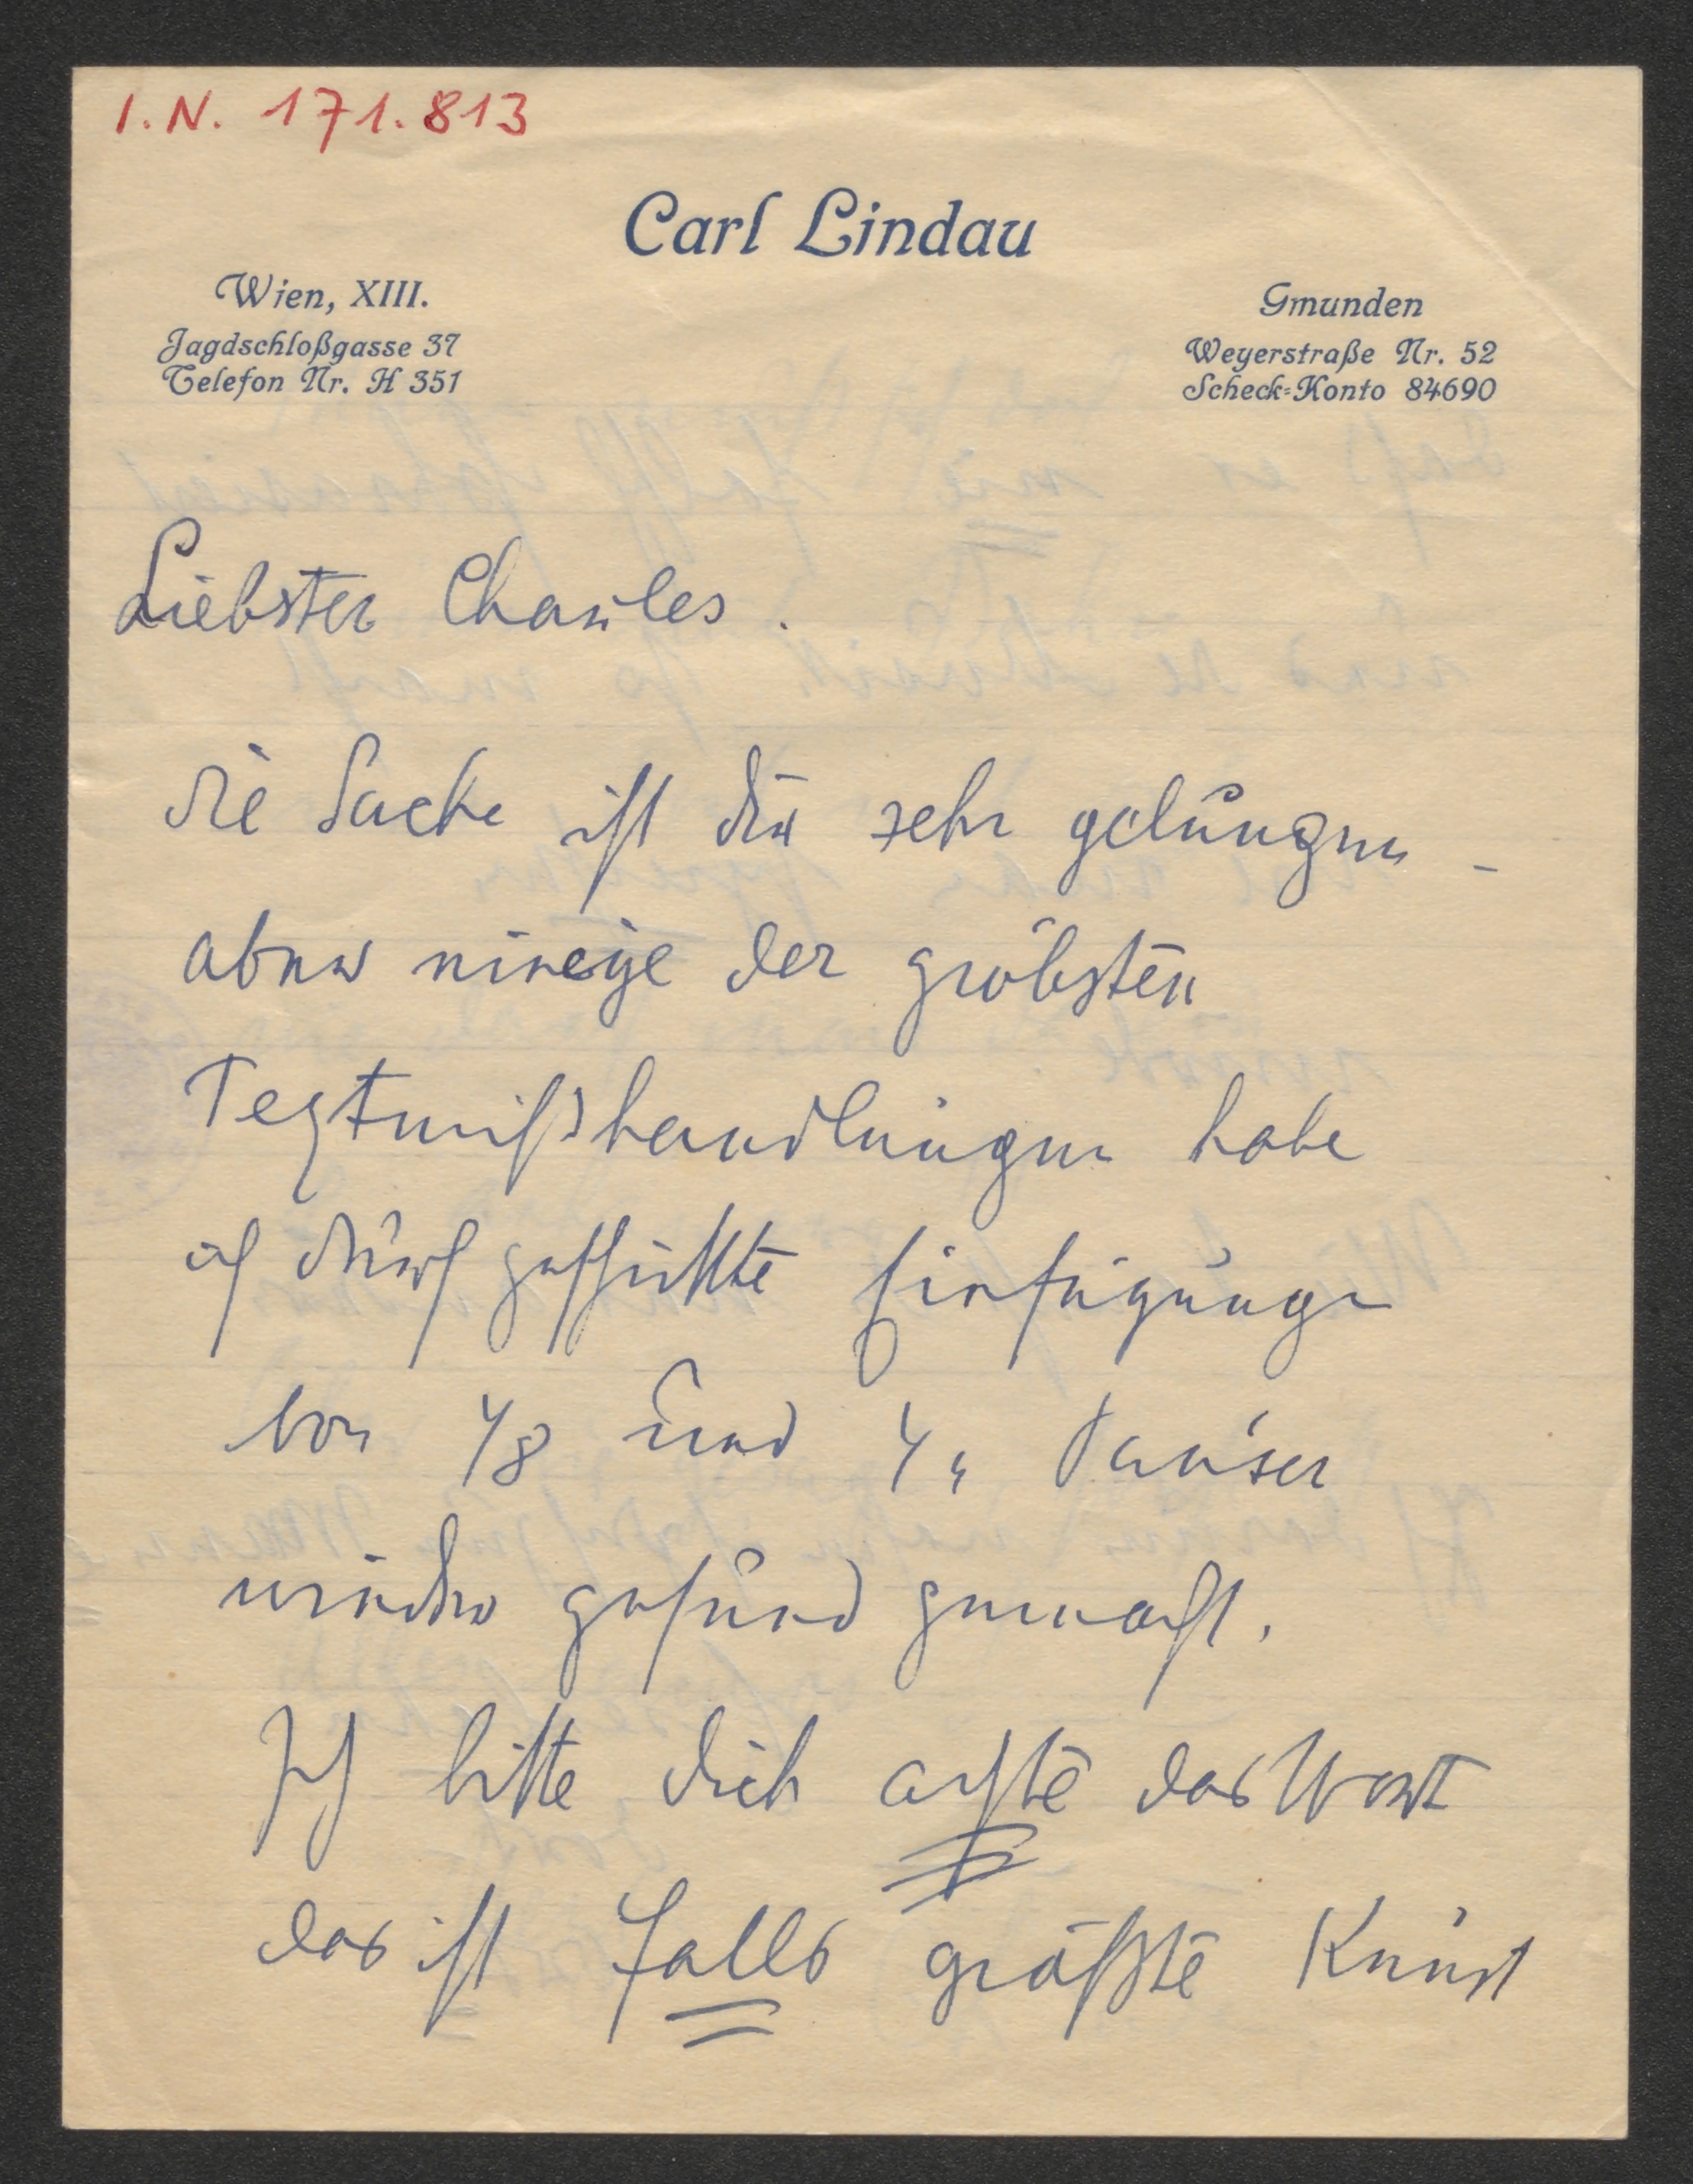 I.N. 171.813
Carl Lindau
Wien, XIII.
Jagdschloßgasse 37
Telefon Nr. H 351
Gmunden
Weyerstraße Nr. 52
Scheck-Konto 84690
Liebster Charles.
die Sache ist dir sehr gelungen –
aber einige der gröbsten
Textmißhandlungen habe
ich durch geschickte Einfügung
von 1/8 und 1/4 Pausen
wieder gesund gemacht.
Ich bitte dich achte das Wort
das ist Falls größte Kunst